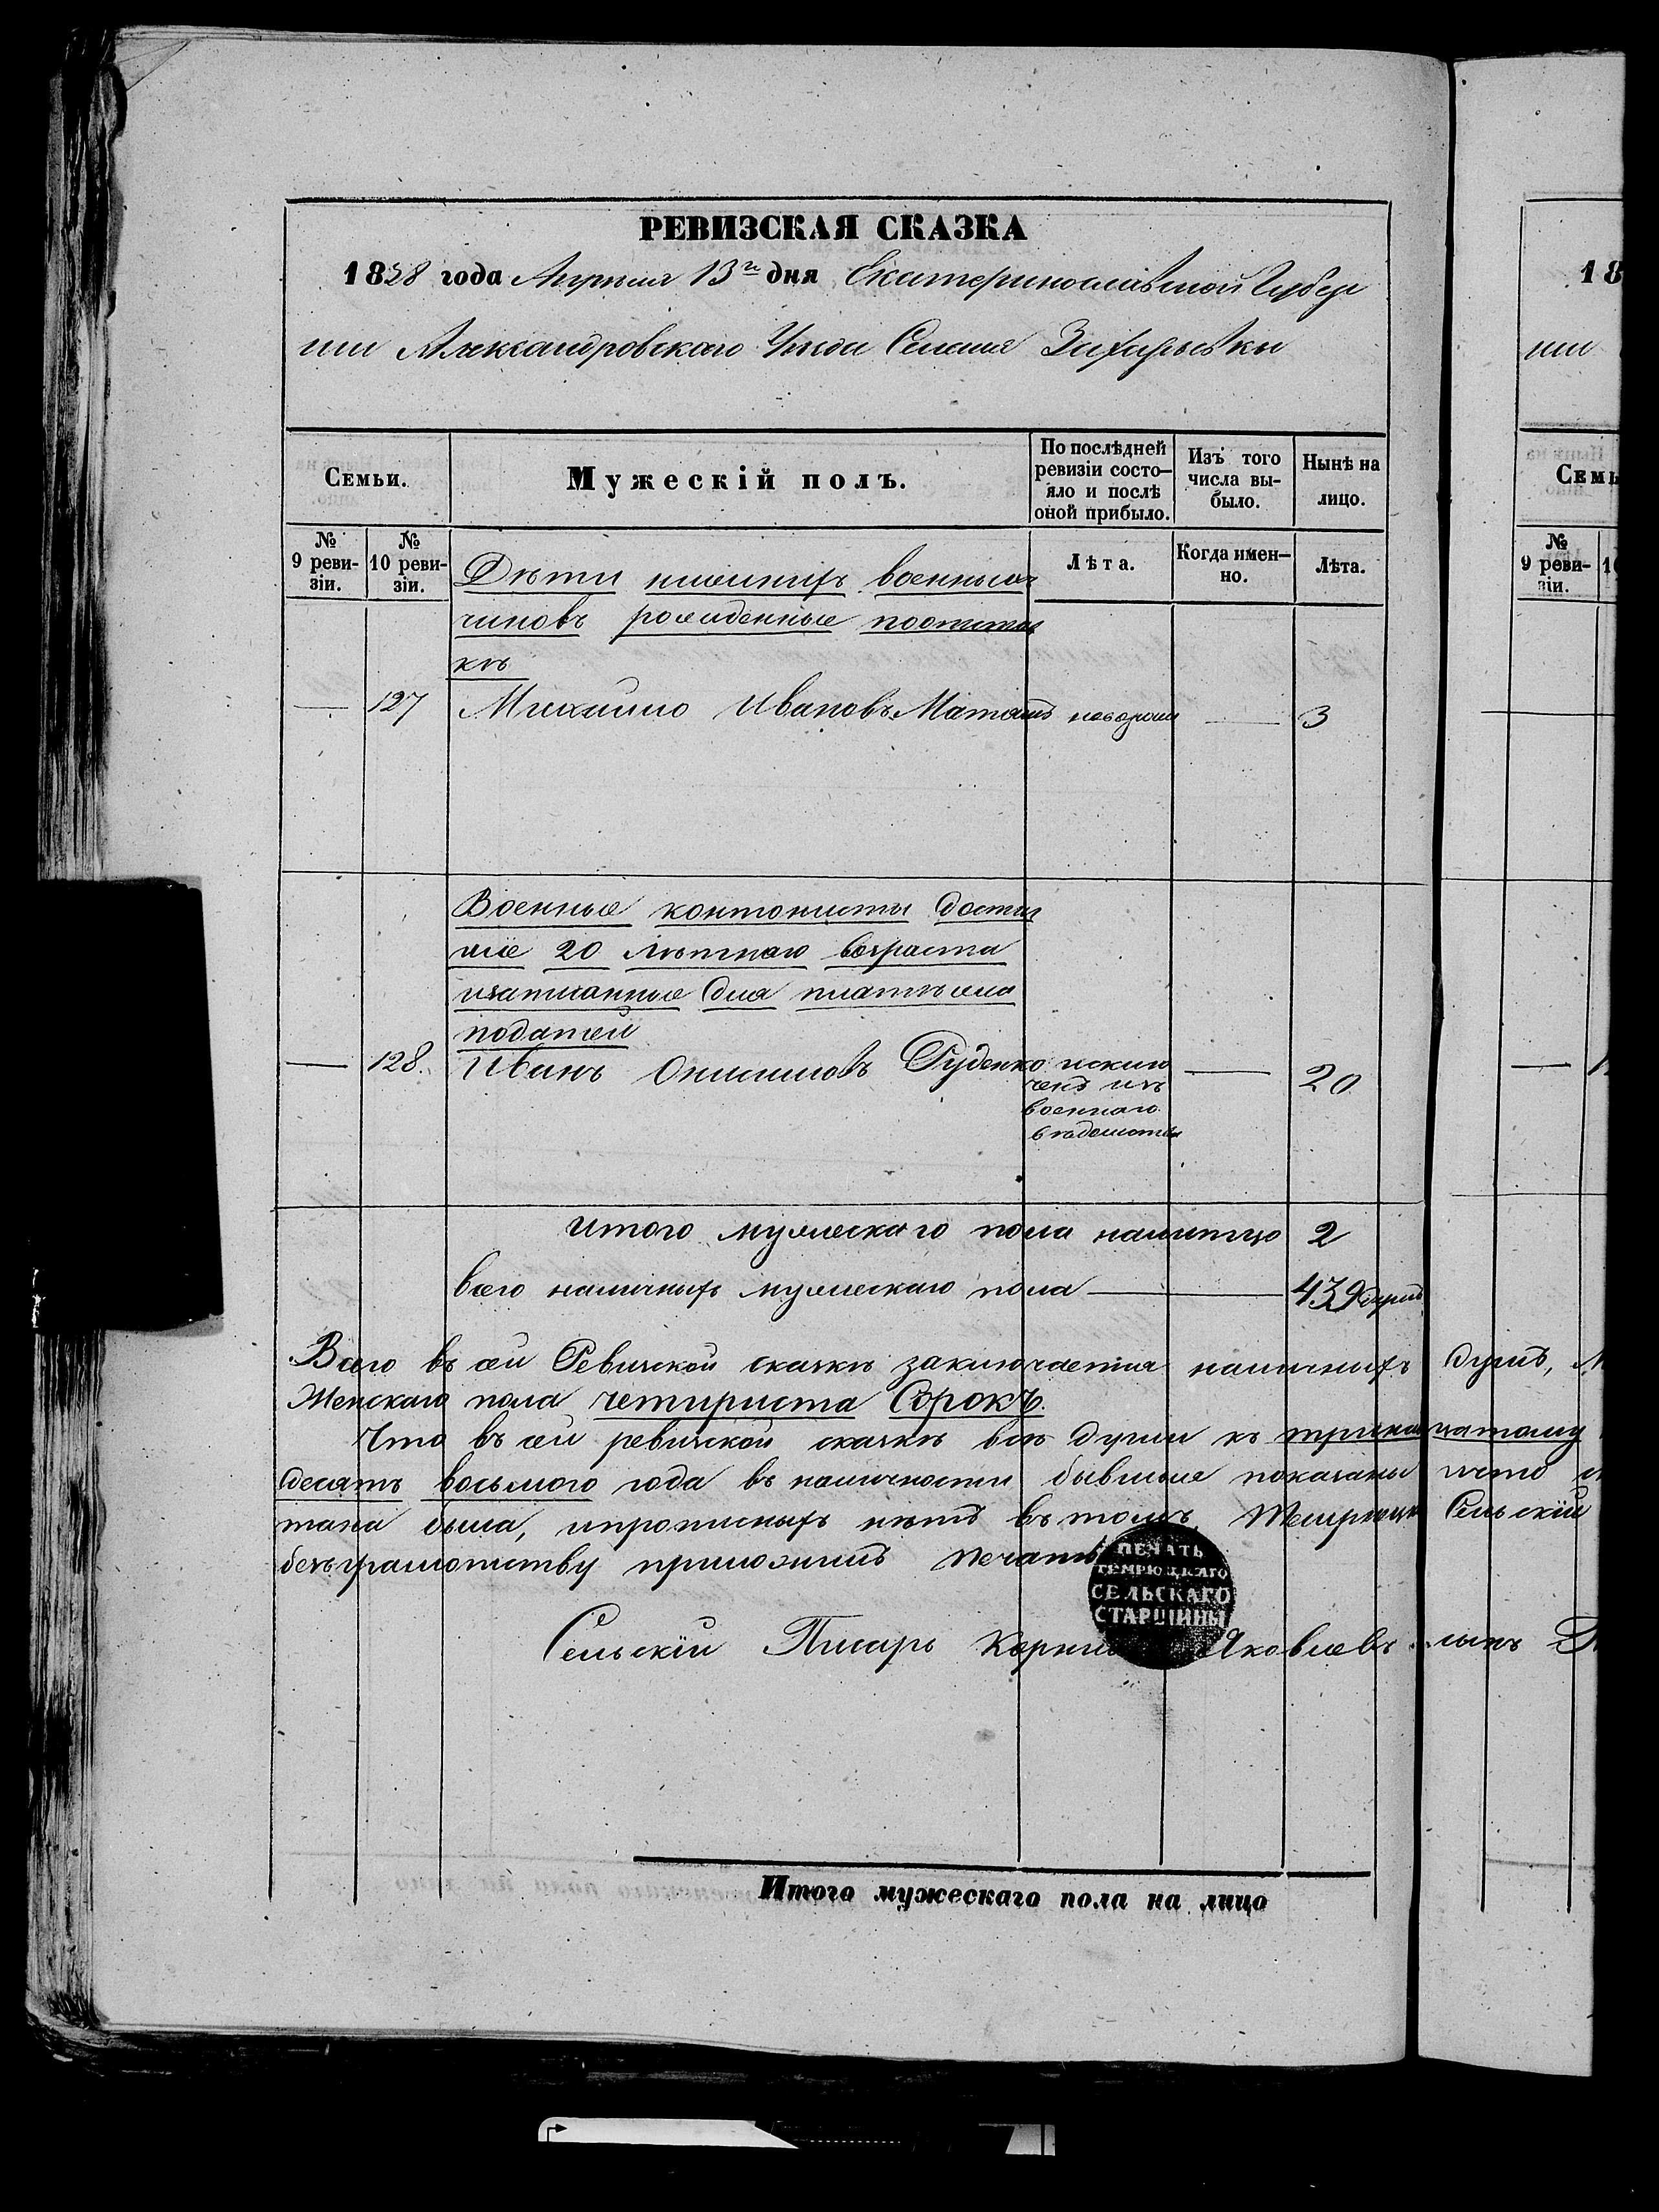 РЕВИЗСКАЯ СКАЗКА
1858 года Апреля 13го дня Екатеринославской Губер
нии Александровского Уезда Селения Захарьевки
18
нии
Семьи.
Мужескій полъ.
По послѣдней ревизіи состо-яло и послѣ оной прибыло.
Изъ того числа вы-было.
Нынѣ на лицо.
№ 9 реви-зіи.
№ 10 реви-зіи.
Лѣта.
Когда имен-но.
Лѣта.
Семь
№ 9 реви-зіи.
10
Дѣти нижнихъ военныхъ
чиновъ рожденные поотстав
кѣ
— 127 Михайло Ивановъ новорож — 3
Военные контонисты достиг
шіе 20 лѣтнаго возраста
изаписанные для платежа
податей
— 128. Иванъ Онисимовъ Руденко исклю — 20
ченъ изъ
военнаго
вѣдомства
итого мужескаго пола налитцо 2
всего наличныхъ мужескаго пола — 439 душъ
Всего въ сей Ревизской сказкѣ заключается наличныхъ душъ, М
Женскаго пола четыриста Сорокъ.
Что въ сей ревизской сказкѣ всѣ души къ тринадцатому
десятъ восьмого года въ наличности бывшые показаны ичто
тана была, ипрописныхъ нѣтъ въ томъ, Темрюцкій Сельскій
безграмотству приложилъ печать
ПЕЧАТЬ
ТЕМРЮЦКАГО
СЕЛЬСКАГО
СТАРШИНЫ
Сельскій Писарь Яковлевъ сынъ
Итого мужескаго пола на лицо